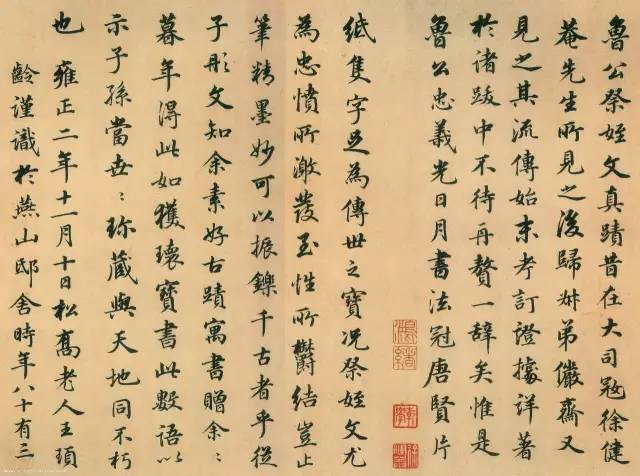 魯公祭姪文真蹟昔在大司寇徐健
菴先生所見之後歸姊弟儼齋又
見之其流傳始末考訂證據詳著
於諸跋中不待再贅一辭矣惟是
魯公忠義光日月書法冠唐賢片
紙隻字足為傳世之寶況祭姪文尤
為忠憤所激發至性所鬱結豈止
筆精墨妙可以振鑠千古者乎從
子彤文知余素好古蹟寓書贈余〻
暮年得此如獲瓌寶書此數語以
示子孫當世〻珎藏與天地同不朽
也 雍正二年十一月十日松喬老人王頊
齡謹識於燕山邸舍時年八十有三